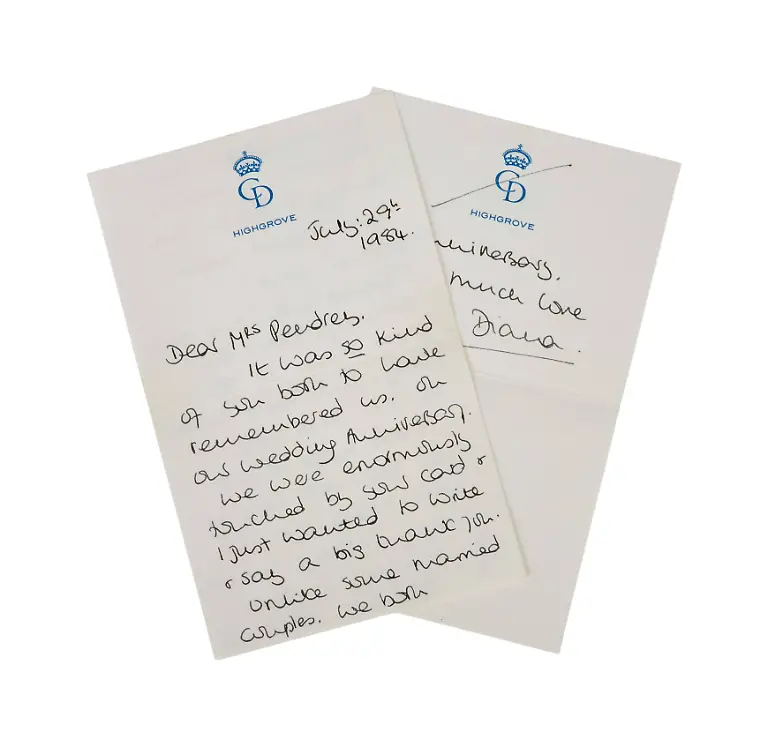 CD
HIGHGROVE
July: 29th
1984.
Dear Mrs Pendrey.
It was so kind
of you both to have
remembered us. on
our wedding Anniversary.
we were enormously
touched by your card &
I just wanted to write
& say a big thank you.
unlike some married
couples. we both
CD
HIGHGROVE
nniversary.
much love
Diana.